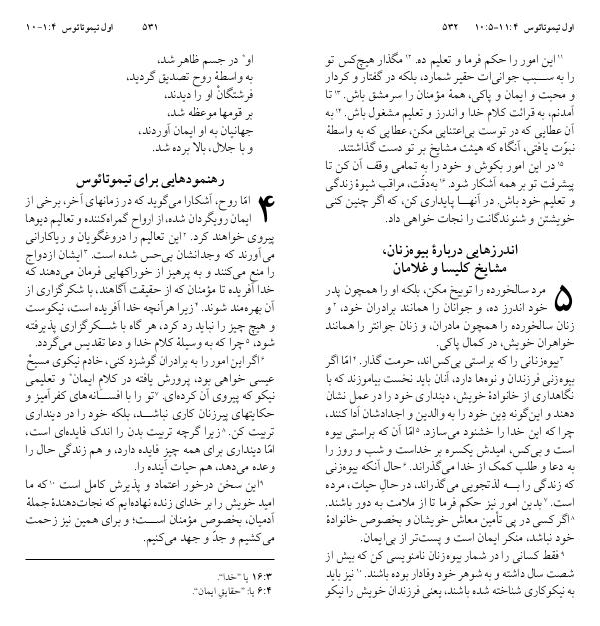 اول تیموتائوس ۱:۴-۱۰ ۵۳۱
او* در جسم ظاهر شد،
به واسطهٔ روح تصدیق گردید،
فرشتگانْ او را دیدند،
بر قومها موعظه شد،
جهانیان به او ایمان آوردند،
و با جلال، بالا برده شد.
رهنمودهایی برای تیموتائوس
۴ امّا روح، آشکارا می‌گوید که در زمانهای آخر، برخی از
ایمان رویگردان شده، از ارواح گمراه‌کننده و تعالیم دیوها
پیروی خواهند کرد. ۲این تعالیم را دروغگویان و ریاکارانی
می‌آورند که وجدانشان بی‌حس شده است. ۳ایشان ازدواج
را منع می‌کنند و به پرهیز از خوراکهایی فرمان می‌دهند که
خدا آفریده تا مؤمنان که از حقیقت آگاهند، با شکرگزاری از
آن بهره‌مند شوند. ۴زیرا هرآنچه خدا آفریده است، نیکوست
و هیچ چیز را نباید رد کرد، هر گاه با شکرگزاری پذیرفته
شود، ۵چرا که به وسیلهٔ کلام خدا و دعا تقدیس می‌گردد.
۶اگر این امور را به برادران گوشزد کنی، خادم نیکوی مسیحْ
عیسی خواهی بود، پرورش یافته در کلام ایمان* و تعلیمی
نیکو که پیروی آن کرده‌ای. ۷تو را با افسانه‌های کفرآمیز و
حکایتهای پیرزنان کاری نباشد، بلکه خود را در دینداری
تربیت کن. ۸زیرا گرچه تربیت بدن را اندک فایده‌ای است،
امّا دینداری برای همه چیز فایده دارد، و هم زندگی حال را
وعده می‌دهد، هم حیات آینده را.
۹این سخن درخور اعتماد و پذیرش کامل است ۱۰که ما
امید خویش را بر خدای زنده نهاده‌ایم که نجات‌دهندهٔ جملهٔ
آدمیان، بخصوص مؤمنان است؛ و برای همین نیز زحمت
می‌کشیم و جدّ و جهد می‌کنیم.
۱۶:۳ یا "خدا".
۶:۴ یا: "حقایق ایمان".
۵۳۲ اول تیموتائوس ۱۱:۴-۱۰:۵
۱۱این امور را حکم فرما و تعلیم ده. ۱۲مگذار هیچ‌کس تو
را به سبب جوانی‌ات حقیر شمارد، بلکه در گفتار و کردار
و محبت و ایمان و پاکی، همهٔ مؤمنان را سرمشق باش. ۱۳تا
آمدنم، به قرائت کلام خدا و اندرز و تعلیم مشغول باش. ۱۴به
آن عطایی که در توست بی‌اعتنایی مکن، عطایی که به واسطهٔ
نبوّت یافتی، آنگاه که هیئت مشایخ بر تو دست گذاشتند.
۱۵در این امور بکوش و خود را به تمامی وقف آن کن تا
پیشرفت تو بر همه آشکار شود. ۱۶به‌دقّت، مراقب شیوهٔ زندگی
و تعلیم خود باش. در آنها پایداری کن، که اگر چنین کنی
خویشتن و شنوندگانت را نجات خواهی داد.
اندرزهایی دربارهٔ بیوه‌زنان،
مشایخ کلیسا و غلامان
۵ مرد سالخورده را توبیخ مکن، بلکه او را همچون پدر
خود اندرز ده، و جوانان را همانند برادران خود، ۲و
زنان سالخورده را همچون مادران، و زنان جوانتر را همانند
خواهران خویش، در کمال پاکی.
۳بیوه‌زنانی را که براستی بی‌کس‌اند، حرمت گذار. ۴امّا اگر
بیوه‌زنی فرزندان و نوه‌ها دارد، آنان باید نخست بیاموزند که با
نگاهداری از خانوادهٔ خویش، دینداری خود را در عمل نشان
دهند و این‌گونه دِین خود را به والدین و اجدادشان ادا کنند،
چرا که این خدا را خشنود می‌سازد. ۵امّا آن که براستی بیوه
است و بی‌کس، امیدش یکسره بر خداست و شب و روز را
به دعا و طلب کمک از خدا می‌گذراند. ۶حال آنکه بیوه‌زنی
که زندگی را به لذتجویی می‌گذراند، در حالِ حیات، مرده
است. ۷بدین امور نیز حکم فرما تا از ملامت به دور باشند.
۸اگر کسی در پی تأمین معاش خویشان و بخصوص خانوادهٔ
خود نباشد، منکر ایمان است و پست‌تر از بی‌ایمان.
۹فقط کسانی را در شمار بیوه‌زنان نامنویسی کن که بیش از
شصت سال داشته و به شوهر خود وفادار بوده باشند. ۱۰نیز باید
به نیکوکاری شناخته شده باشند، یعنی فرزندان خویش را نیکو